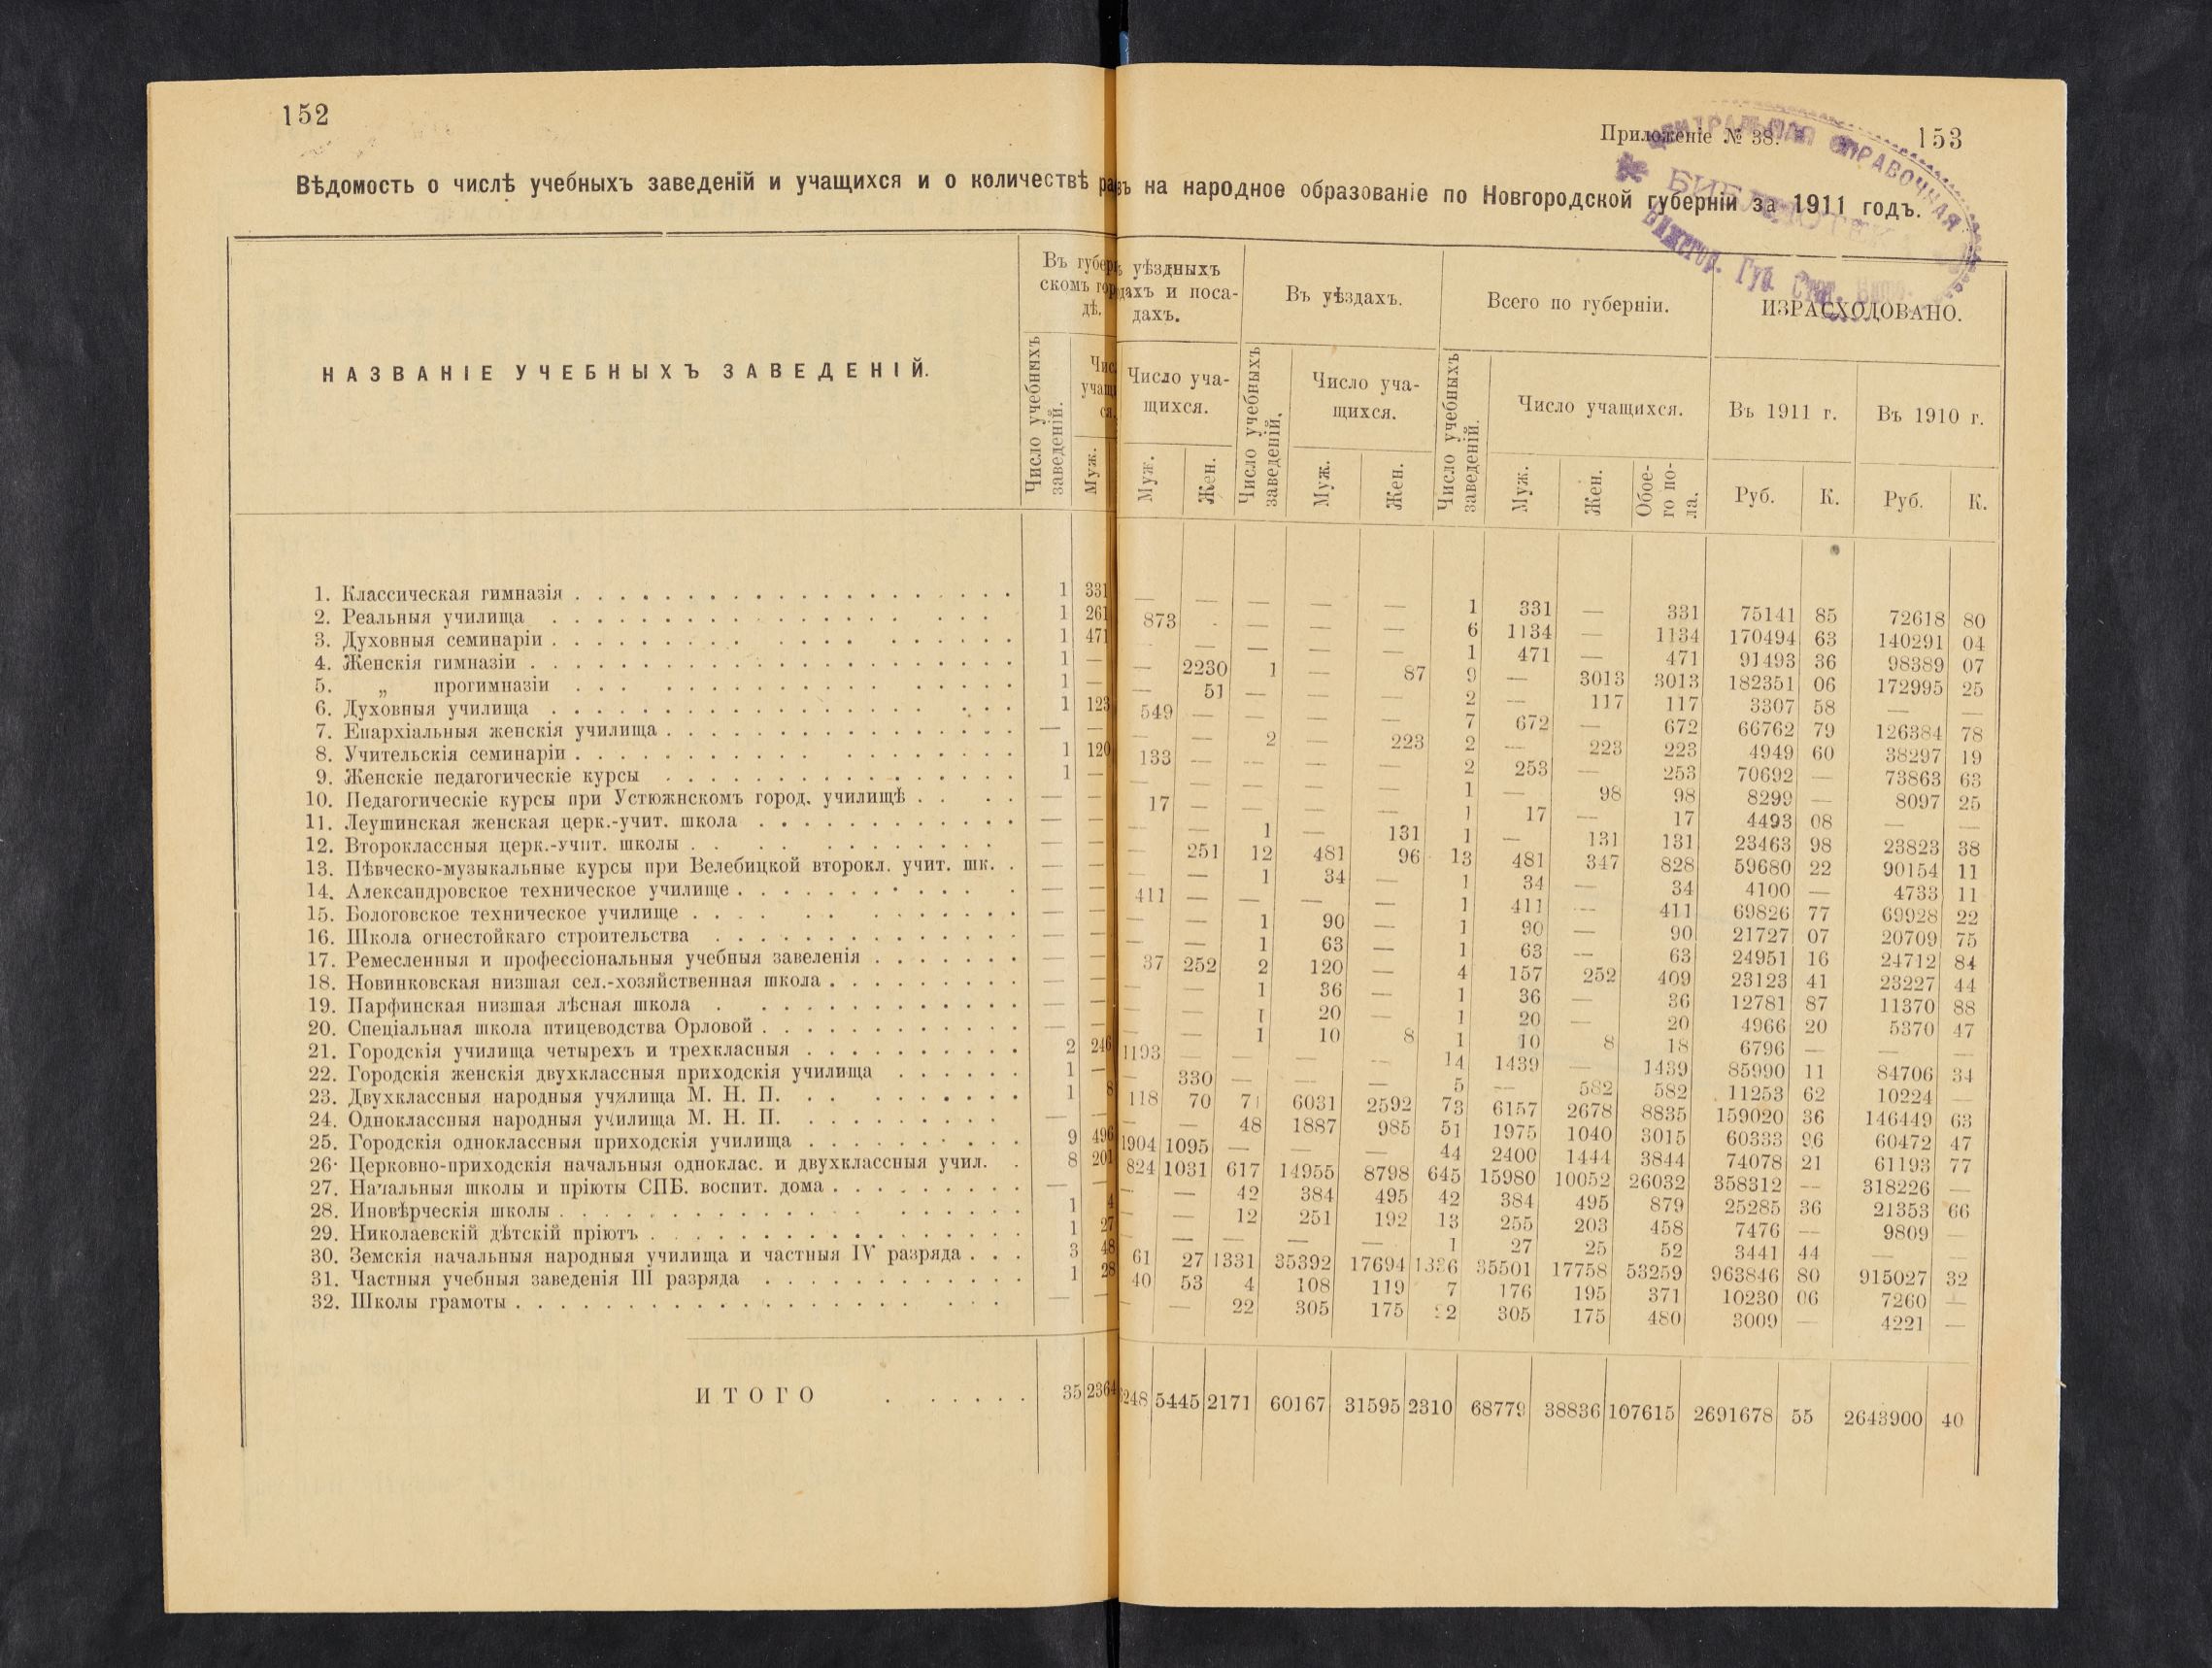 152
Приложеніе № 38.
153
Вѣдомость о числѣ учебныхъ заведеній и учащихся и о количествѣ
на народное образованіе по Новгородской губерніи за 1911 годъ.
НАЗВАНІЕ УЧЕБНЫХЪ ЗАВЕДЕНІЙ.
Въ губер
скомъ гор
дѣ.
уѣздныхъ
и поса-
дахъ.
Въ уѣздахъ.
Всего по губерніи.
ИЗРАСХОДОВАНО.
Число учебныхъ заведеній.
Муж.
Число уча-
щихся.
Муж. Жен.
Число учебныхъ заведеній.
Число уча-
щихся.
Муж. Жен.
Число учебныхъ заведеній.
Число учащихся.
Муж. Жен. Обое-
го по-
ла.
Въ 1911 г. Въ 1910 г.
Руб. К. Руб. К.
1. Классическая гимназія 1 331 — — — — — 1 331 — 331 75141 85 72618 80
2. Реальныя училища 1 261 873 — — — 6 1134 — 1134 170494 63 140291 04
3. Духовныя семинаріи 1 471 — — — — 1 471 — 471 91493 36 98389 07
4. Женскія гимназіи 1 — — 2230 1 — 87 9 — 3013 3013 182351 06 172995 25
5. „ прогимназіи 1 — — 51 — — — 2 — 117 117 3307 58 — —
6. Духовныя училища 1 123 549 — — — — 7 672 — 672 66762 79 126384 78
7. Епархіальныя женскія училища — — — — 2 — 223 2 — 223 223 4949 60 38297 19
8. Учительскія семинаріи 1 120 133 — — — — 2 253 — 253 70692 — 73863 63
9. Женскіе педагогическіе курсы 1 — — — — — — 1 — 98 98 8299 — 8097 25
10. Педагогическіе курсы при Устюжнскомъ город. училищѣ — — 17 — — — — 1 17 — 17 4493 08 — —
11. Леушинская женская церк.-учит. школа — — — — 1 — 131 1 — 131 131 23463 98 23823 38
12. Второклассныя церк.-учит. школы — — — 251 12 481 96 13 481 347 828 59680 22 90154 11
13. Пѣвческо-музыкальные курсы при Велебицкой второкл. учит. шк. — — — — 1 34 — 1 34 — 34 4100 — 4733 11
14. Александровское техническое училище — — 411 — — — — 1 411 — 411 69826 77 69928 22
15. Бологовское техническое училище — — — — 1 90 — 1 90 — 90 21727 07 20709 75
16. Школа огнестойкаго строительства — — — — 1 63 — 1 63 — 63 24951 16 24712 84
17. Ремесленныя и профессіональныя учебныя завеленія — — 37 252 2 120 — 4 157 252 409 23123 41 23227 44
18. Новинковская низшая сел.-хозяйственная школа — — — — 1 36 — 1 36 — 36 12781 87 11370 88
19. Парфинская низшая лѣсная школа — — — — 1 20 — 1 20 — 20 4966 20 5370 47
20. Спеціальная школа птицеводства Орловой — — — — 1 10 8 1 10 8 18 6796 — — —
21. Городскія училища четырехъ и трехкласныя 2 246 1193 — — — — 14 1439 — 1439 85990 11 84706 34
22. Городскія женскія двухклассныя приходскія училища 1 — — 330 — — — 5 — 582 582 11253 62 10224 —
23. Двухклассныя народныя училища М. Н. П. 1 8 118 70 71 6031 2592 73 6157 2678 8835 159020 36 146449 63
24. Одноклассныя народныя училища М. Н. П. — — — — 48 1887 985 51 1975 1040 3015 60333 96 60472 47
25. Городскія одноклассныя приходскія училища 9 496 1904 1095 — — — 44 2400 1444 3844 74078 21 61193 77
26. Церковно-приходскія начальныя одноклас. и двухклассныя учил. 8 201 824 1031 617 14955 8798 645 15980 10052 26032 358312 — 318226 —
27. Начальныя школы и пріюты СПБ. воспит. дома — — — — 42 384 495 42 384 495 879 25285 36 21353 66
28. Иновѣрческія школы 1 4 — — 12 251 192 13 255 203 458 7476 — 9809 —
29. Николаевскій дѣтскій пріютъ 1 27 — — — — — 1 27 25 52 3441 44 — —
30. Земскія начальныя народныя училища и частныя IV разряда 3 48 61 27 1331 35392 17694 1336 35501 17758 53259 963846 80 915027 32
31. Частныя учебныя заведенія III разряда 1 28 40 53 4 108 119 7 176 195 371 10230 06 7260 —
32. Школы грамоты — — — — 22 305 175 22 305 175 480 3009 — 4221 —
ИТОГО 35 2364 248 5445 2171 60167 31595 2310 68779 38836 107615 2691678 55 2643900 40